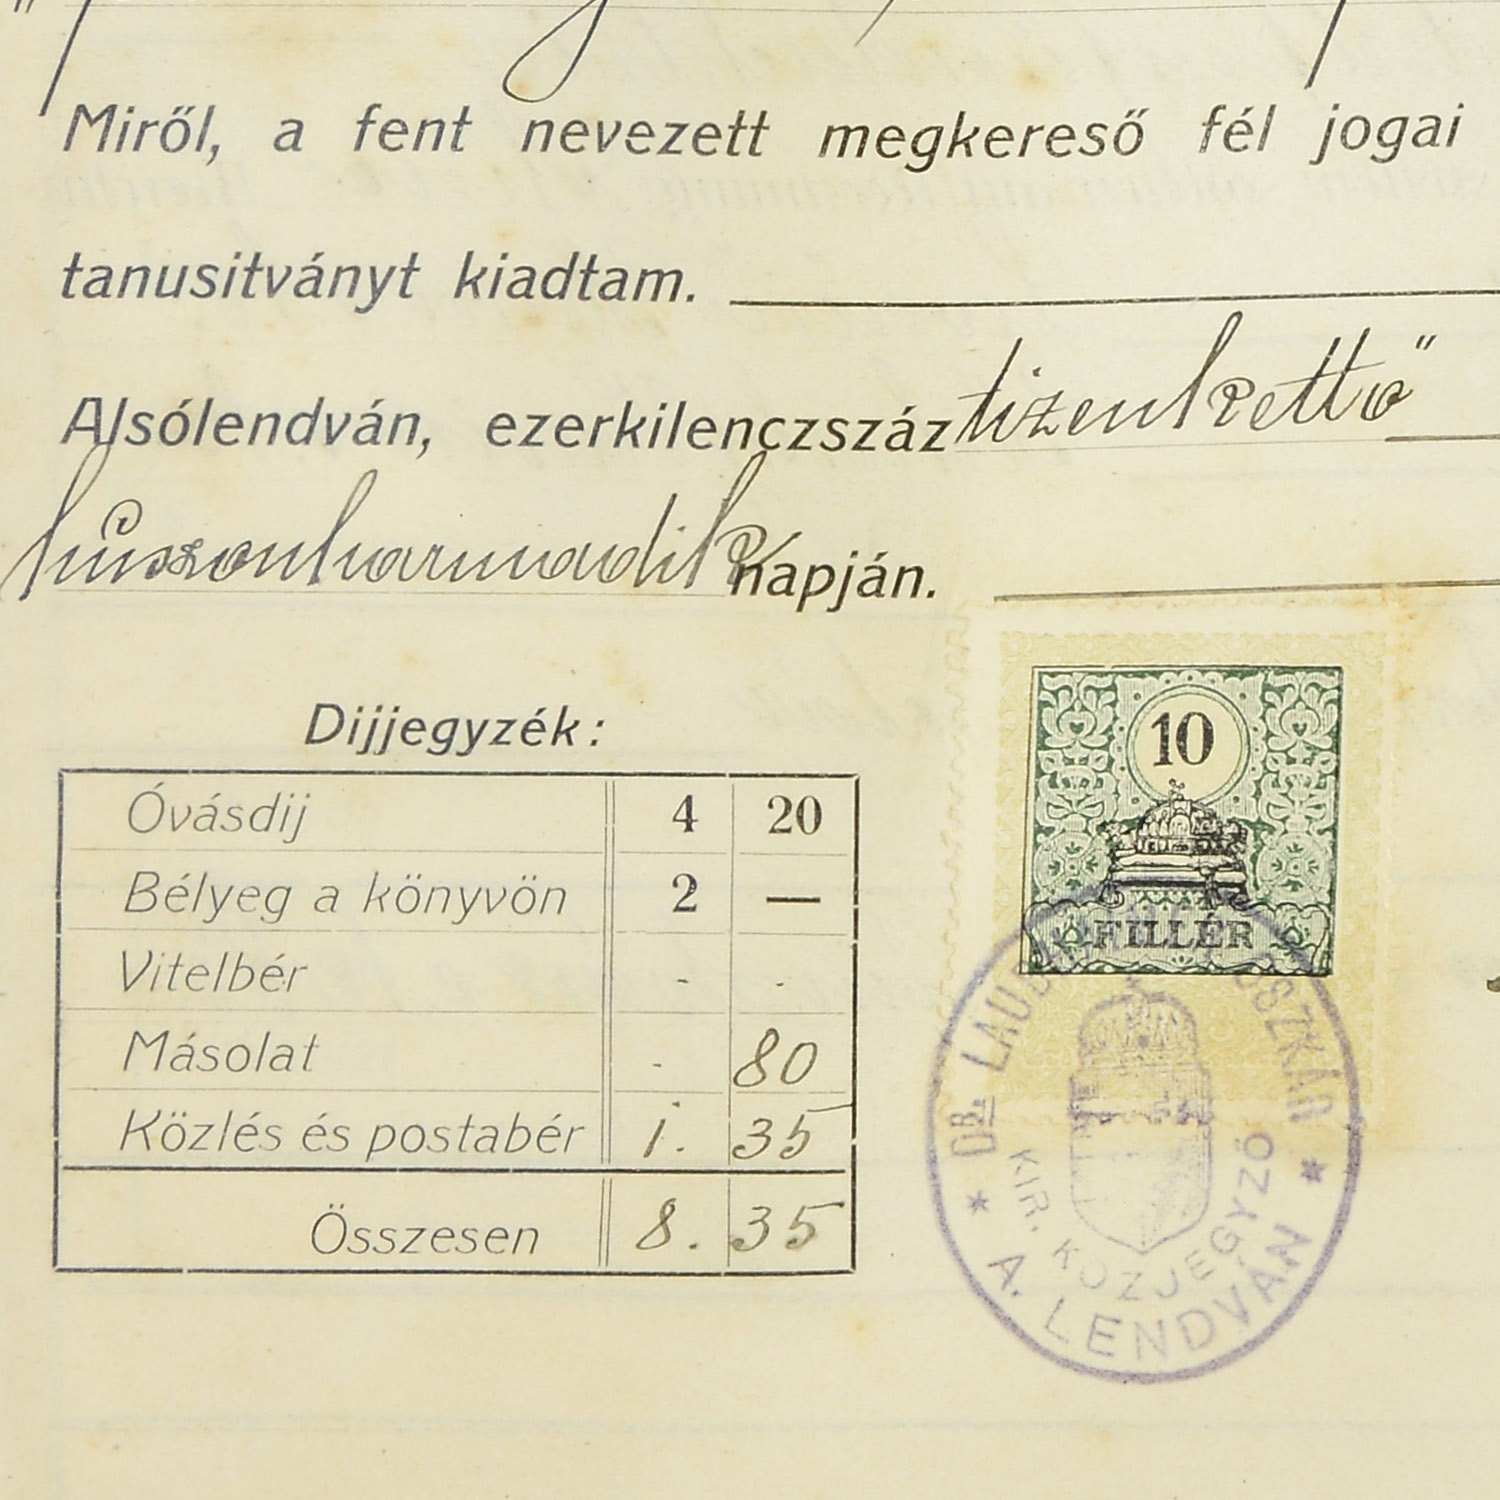 Miről, a fent nevezett megkereső fél jogai
tanusitványt kiadtam.
Alsólendván, ezerkilenczszáz tizenkettő"
húszonharmadik napján.
Dijjegyzék:
Óvásdij 4 20
Bélyeg a könyvön 2 —
Vitelbér - -
Másolat - 80
Közlés és postabér 1. 35
Összesen 8. 35
10
FILLÉR
* DR. OSZKÁR *
KIR. KÖZJEGYZŐ
A. LENDVÁN